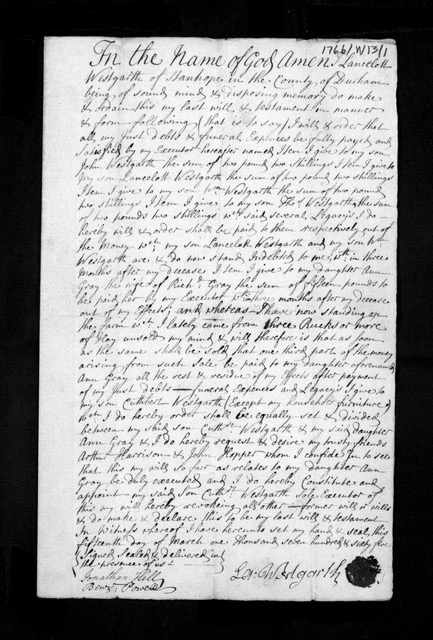 1766/W13/1
In the Name of God Amen I Lancelott
Westgarth of Stanhope in the County of Durham
being of sound mind & disposing memory do make
& ordain this my last will & testament in manner
& form following (that is to say) I will & order that
all my Just Debts & funeral Expences be fully payed and
Satisfied by my Executor hereafter named Item I give to my son
John Westgarth the sum of two pound two shillings Item I give to
My son Lancelott Westgarth the sum of two pound two shillings
Item I give to my son Wm Westgarth the sum of two pound
two shillings Item I give to my son Thos Westgarth the sum
of two pounds two shillings wch said several Legacys I do
hereby will & order shall be paid to them respectively out of
the Money wch my son Lancelott Westgarth and my son Wm
Westgarth are & do now stand Indebted to me wth in three
Months after my decease Item I give to my daughter Ann
Gray the wife of Richd Gray the sum of fifteen pounds to
be paid her by my Executor wth in three months after my decease
out of my Effects; and whereas I have now standing upon
the farm wch I lately came from three Rucks or more
of Hay unsold my mind & will therefore is that as soon
as the same shall be sold that one third part of the money
arising from such sale be paid to my daughter aforenamed
Ann Gray all the rest & residue of my Effects after payment
of my Just Debts funeral Expences and Legacys I give to
my son Cuthbert Westgarth (Except my household furniture)
wch I do hereby order shall be equally set & divided
between my said son Cuthbt Westgarth & my said daughter
Ann Gray & I do hereby request & desire my trusty friends
Arthur Harrison & John Hopper whom I confide in to see
that this my will so far as relates to my daughter Ann
Gray be duly executed and I do hereby Constitute and
appoint my said Son Cuthbt Westgarth Sole Executor of
this my will hereby revokeing all other former will or wills
& do make & declare this to be my last will & testament
In Witness whereof I have hereunto set my hand & seal this
fifteenth day of March one thousand seven hundred & sixty five
Signed Sealed & delivered in
the presence of us
Jonathan Hell
Lan: Westgarth
Benj: Powell